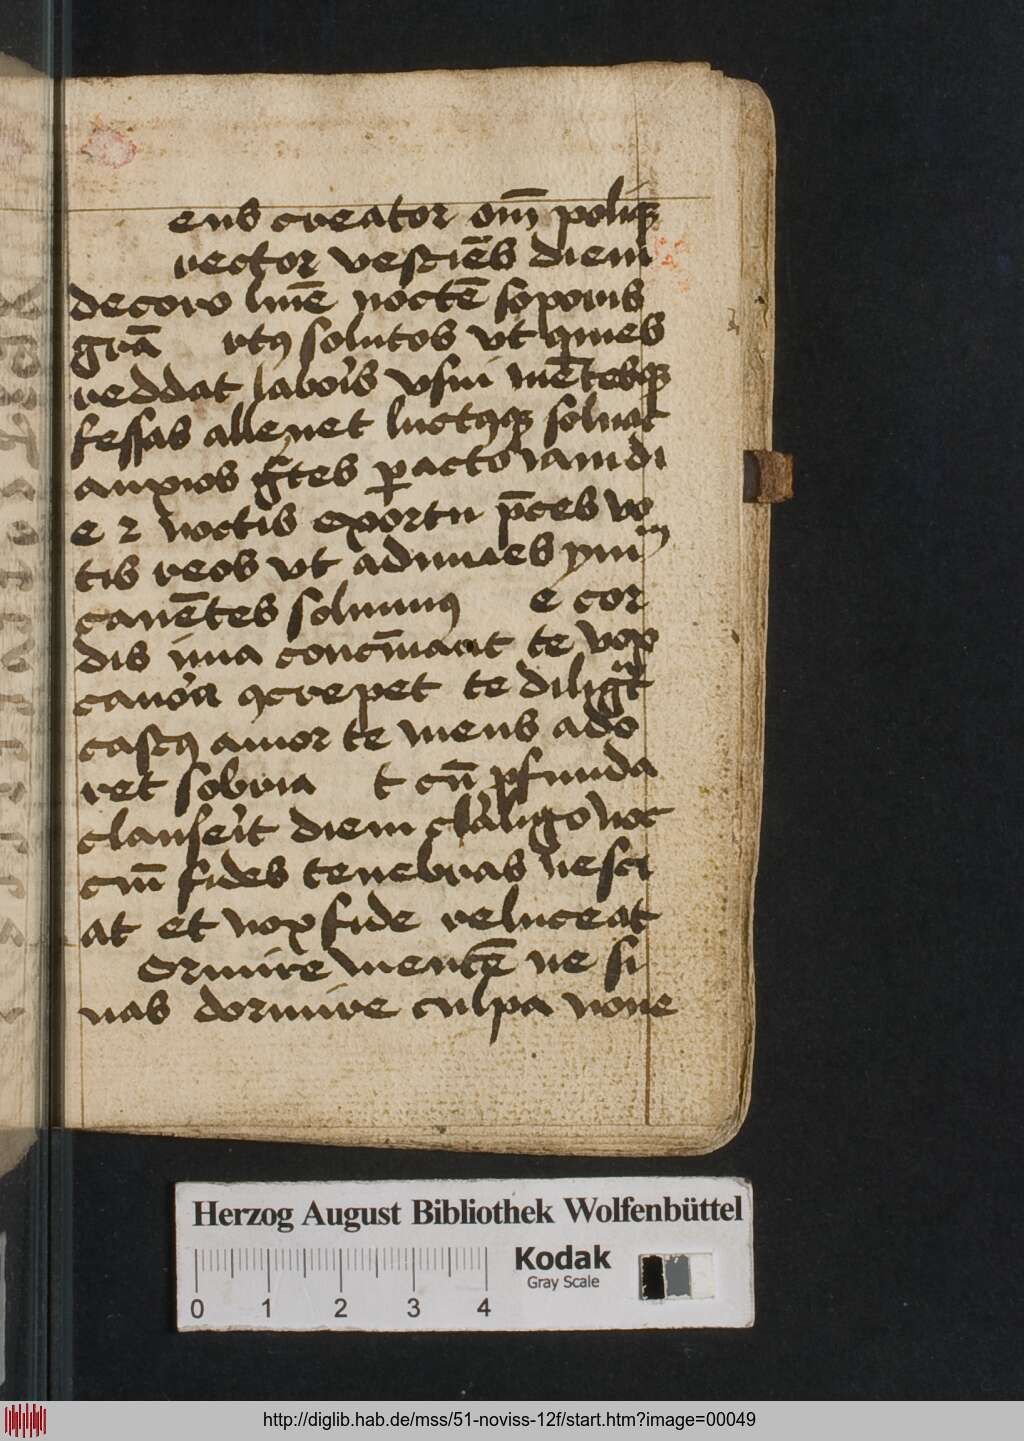 ens creator om̄ poliqꝫ
rector vestiēs diem
decoro lūīe noctē soporis
grā rtꝰ solutos vt quies
reddat laboīs vsui mētesqꝫ
fessas alleuet luctꝰqꝫ soluat
anxios gͬtes ꝑacto iam di
e ⁊ noctis exortu p̄ces vo
tis reos vt adiuues ymͫ
canētes soluimꝰ e cor
dis ima concīnant te vox
canoͬa ꝯcrepet te diligͣt
castꝰ amor te mens ado
ret sobria t cū ꝓfunda
clauseͬit diem cͣligo noc
ciū fides tenebras nesci
at et nox fide reluceat
ormire mentē ne si
nas dormire culpa noue
Herzog August Bibliothek Wolfenbüttel
Kodak
Gray Scale
0 1 2 3 4
http://diglib.hab.de/mss/51-noviss-12f/start.htm?image=00049